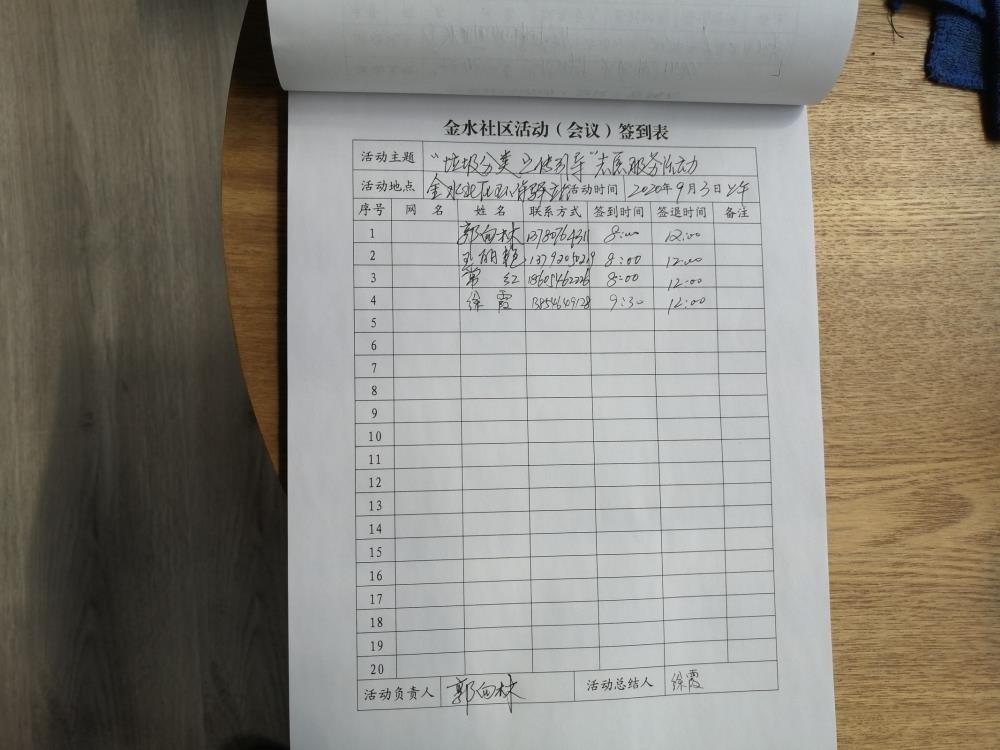 金水社区活动（会议）签到表
活动主题 “垃圾分类 宣传引导”志愿服务活动
活动地点 金水社区环保驿站 活动时间 2020年9月3日上午
序号 网 名 姓 名 联系方式 签到时间 签退时间 备注
1 郭向林 8:00 12:00
2 8:00 12:00
3 常 红 18605462226 8:00 12:00
4 徐 霞 13854649128 9:30 12:00
5
6
7
8
9
10
11
12
13
14
15
16
17
18
19
20
活动负责人 郭向林 活动总结人 徐霞